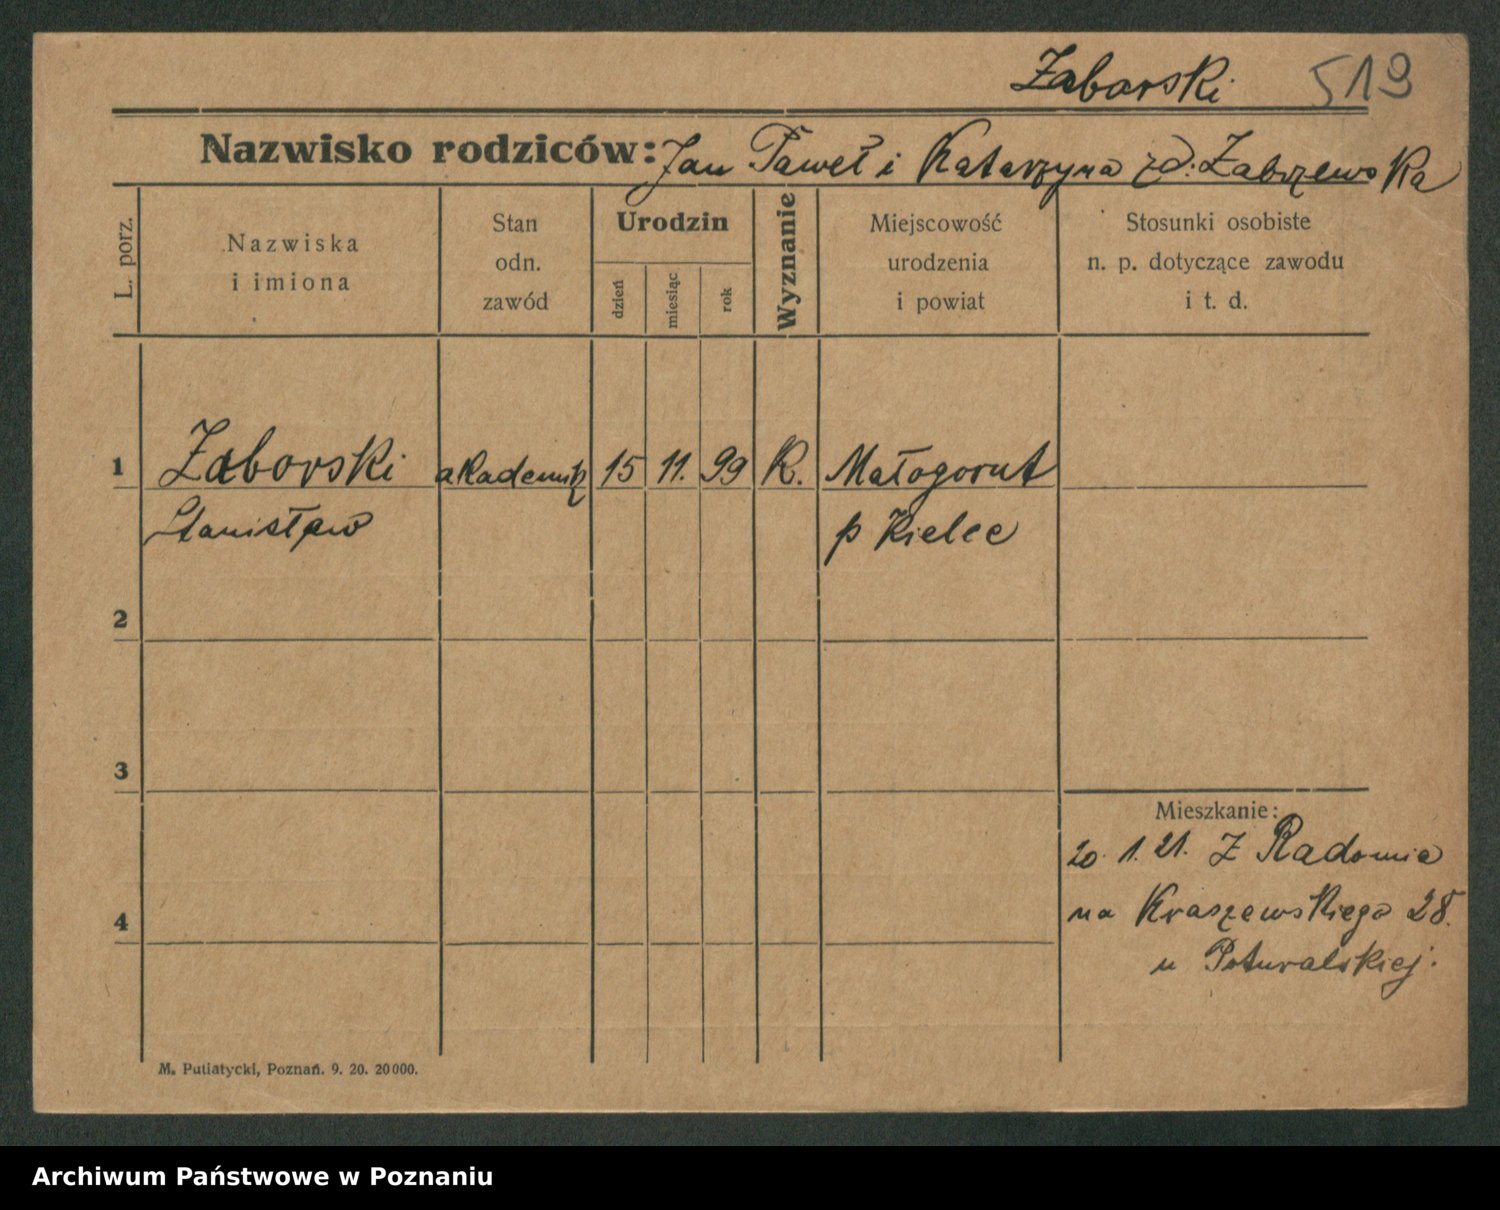 Zaborski 519
Nazwisko rodziców: Jan Paweł i Katarzyna zd. Zabrzewska
L. porz.
Nazwiska
i imiona
Stan
odn.
zawód
Urodzin
dzień
miesiąc
rok
Wyznanie
Miejscowość
urodzenia
i powiat
Stosunki osobiste
n. p. dotyczące zawodu
i t. d.
1 Zaborski akademik 15 11. 99 K. Małogorut
Stanisław p Kielce
2
3
Mieszkanie:
20. 1. 21. Z Radomia
4 na Kraszewskiego 28.
u Poturalskiej.
M. Putiatycki, Poznań. 9. 20. 20000.
Archiwum Państwowe w Poznaniu